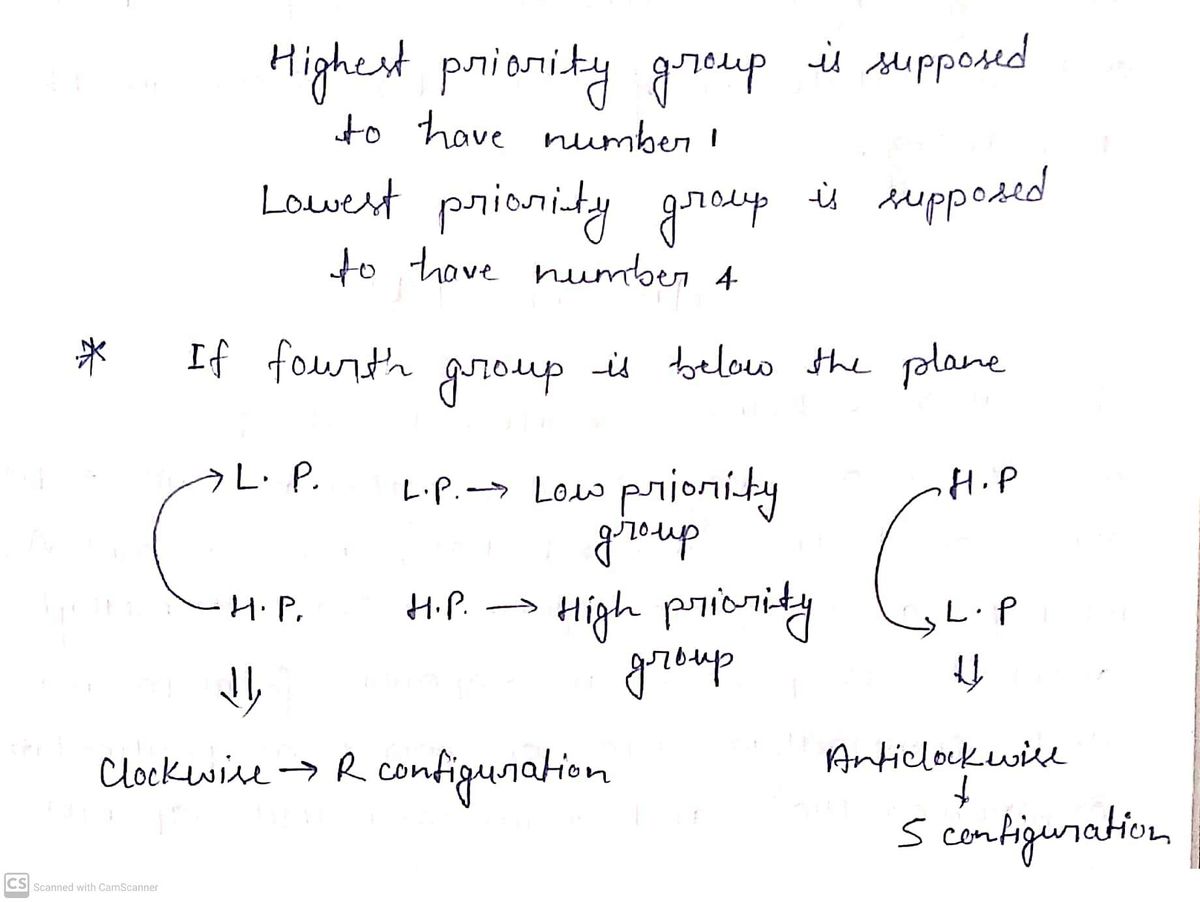 Highest priority group is supposed
to have number 1
Lowest priority group is supposed
to have number 4
* If fourth group is below the plane
L. P. L.P. → Low priority H.P
group
H. P. H.P. → High priority L. P
group
⇓ ⇓
Clockwise → R configuration Anticlockwise
↓
S configuration
CS Scanned with CamScanner